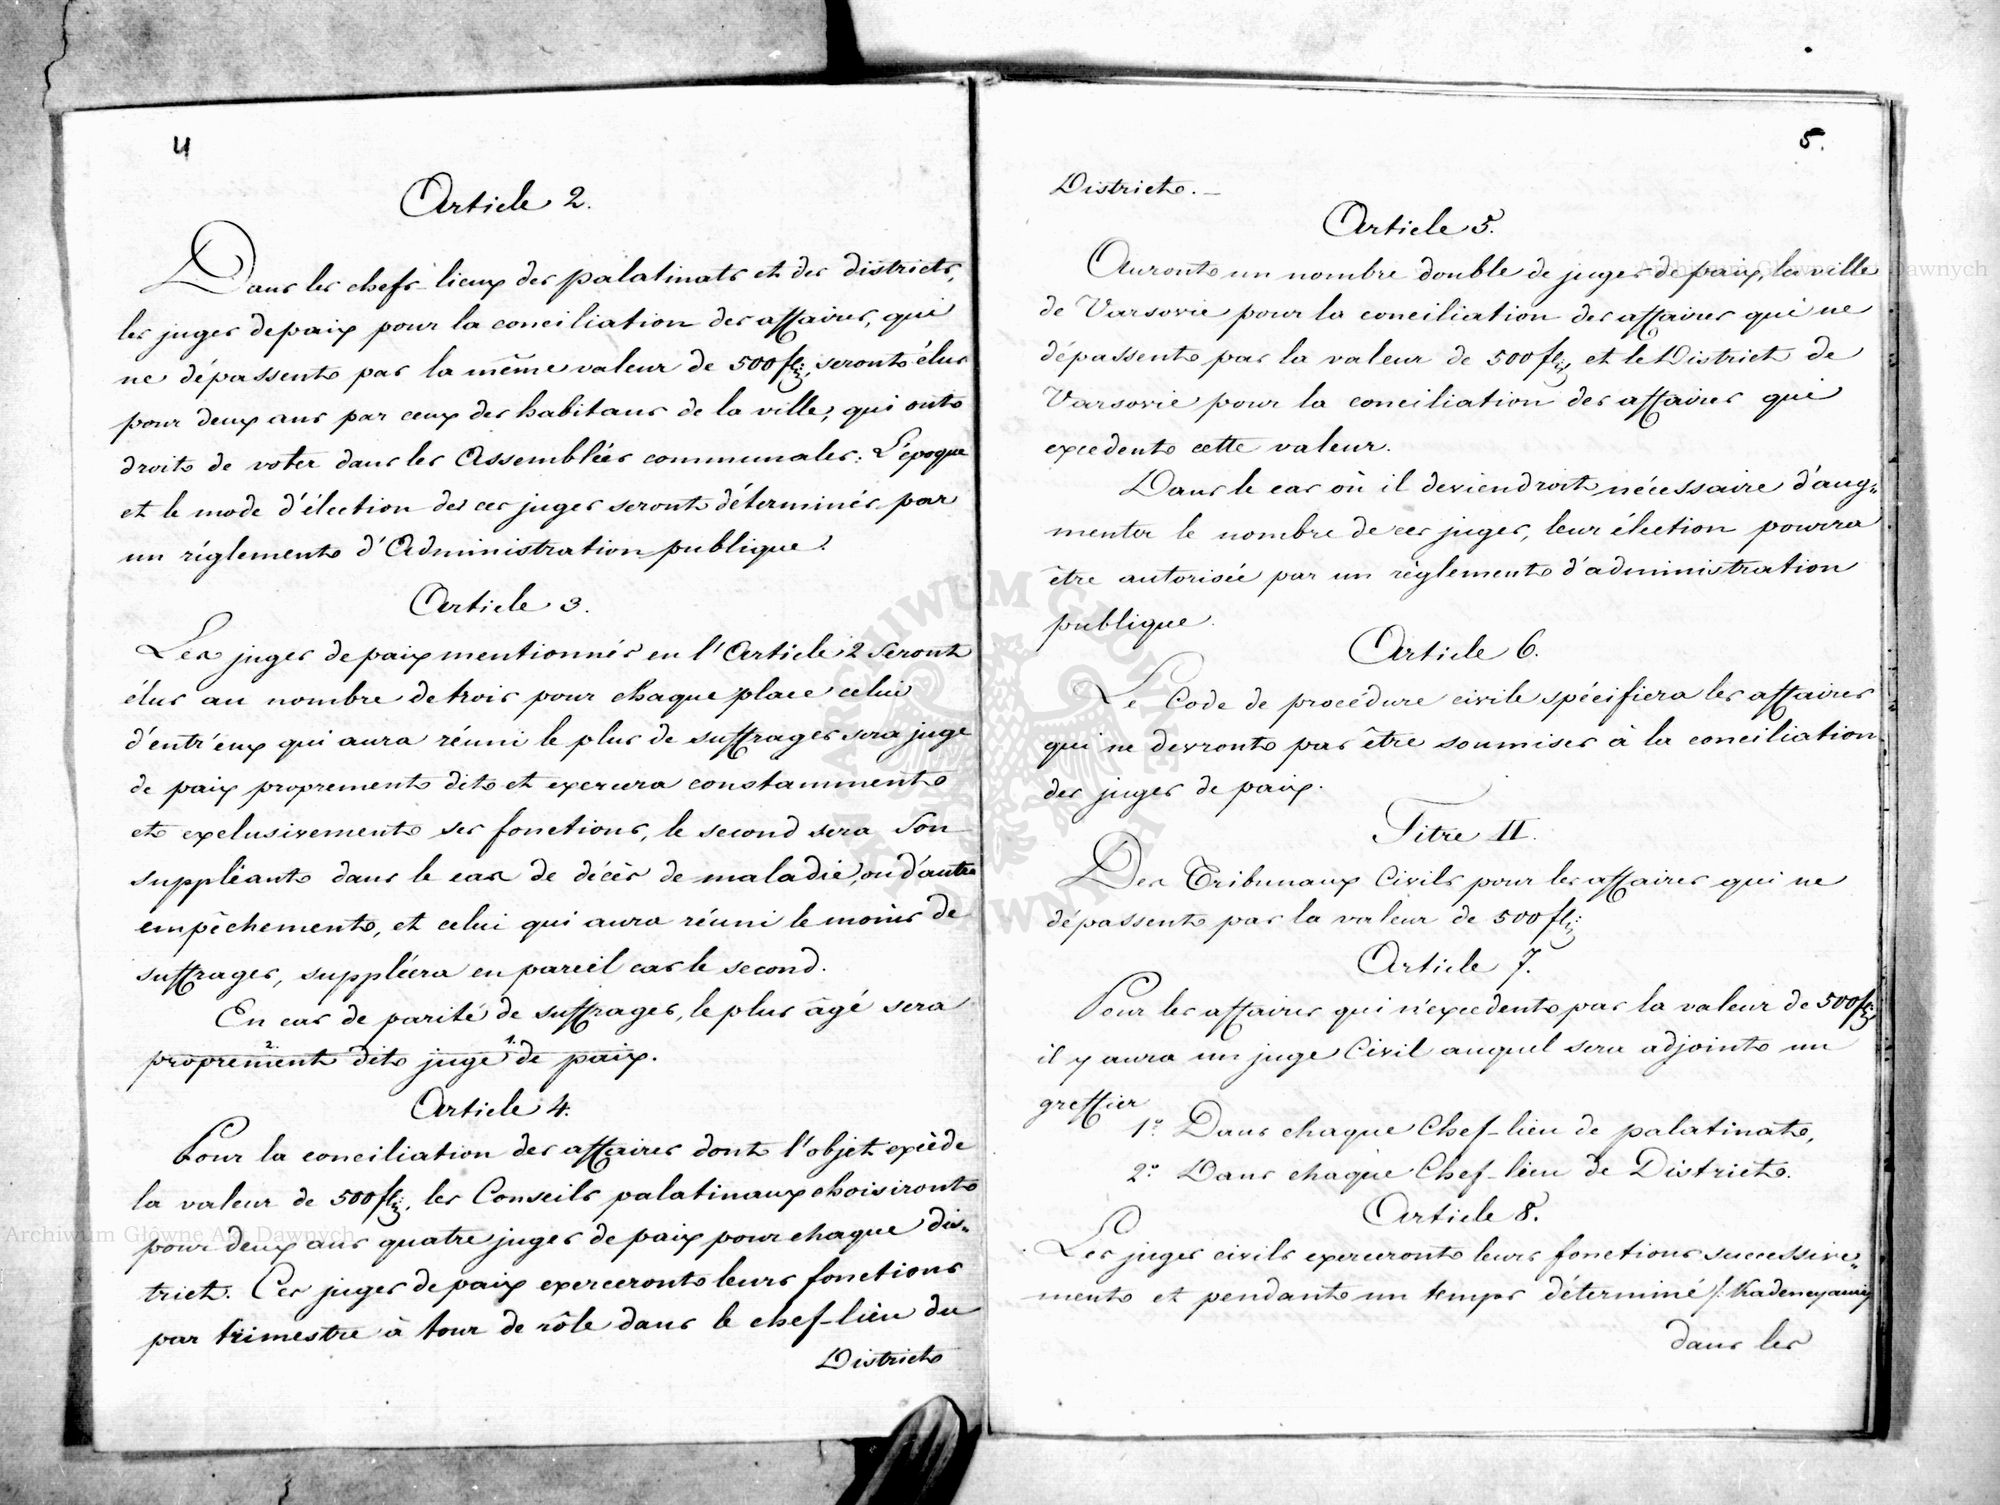 4
Article 2.
Dans les chefs-lieux des palatinats et des districts,
les juges de paix pour la conciliation des affaires, qui
ne dépassent pas la même valeur de 500 fl:, seront élus
pour deux ans par ceux des habitans de la ville, qui ont
droit de voter dans les Assemblées communales: L'époque
et le mode d'élection de ces juges seront déterminés par
un réglement d'Administration publique.
Article 3.
Les juges de paix mentionnés en l'Article 2 seront
élus au nombre de trois pour chaque place celui
d'entr'eux qui aura réuni le plus de suffrages sera juge
de paix proprement dit et exercera constamment
et exclusivement ses fonctions, le second sera son
suppléant dans le cas de décès de maladie, ou d'autre
empêchement, et celui qui aura réuni le moins de
suffrages, suppléera en pareil cas le second.
En cas de parité de suffrages, le plus âgé sera
2. 1.
proprement dit juge de paix.
Article 4.
Pour la conciliation des affaires dont l'objet excède
la valeur de 500 fl:, les Conseils palatinaux choisiront
pour deux ans quatre juges de paix pour chaque dis=
trict. Ces juges de paix exerceront leurs fonctions
par trimestre à tour de rôle dans le chef-lieu du
District
5.
District. —
Article 5.
Auront un nombre double de juges de paix, la ville
de Varsovie pour la conciliation des affaires qui ne
dépassent pas la valeur de 500 fl: et le District de
Varsovie pour la conciliation des affaires qui
excedent cette valeur.
Dans le cas où il deviendroit nécessaire d'aug=
menter le nombre de ces juges, leur élection pourra
être autorisée par un règlement d'administration
publique.
Article 6.
Le Code de procédure civile spécifiera les affaires
qui ne devront pas être soumises à la conciliation
des juges de paix.
Titre II.
Des Tribunaux Civils pour les affaires qui ne
dépassent pas la valeur de 500 fl:
Article 7.
Pour les affaires qui n'excedent pas la valeur de 500 fl:
il y aura un juge Civil auquel sera adjoint un
greffier
1º Dans chaque Chef-lieu de palatinat,
2º Dans chaque Chef-lieu de District.
Article 8.
Les juges civils exerceront leurs fonctions successive=
ment et pendant un temps déterminé
dans les
Archiwum Główne Akt Dawnych
Archiwum Główne Akt Dawnych
ARCHIWUM GŁÓWNE AKT DAWNYCH